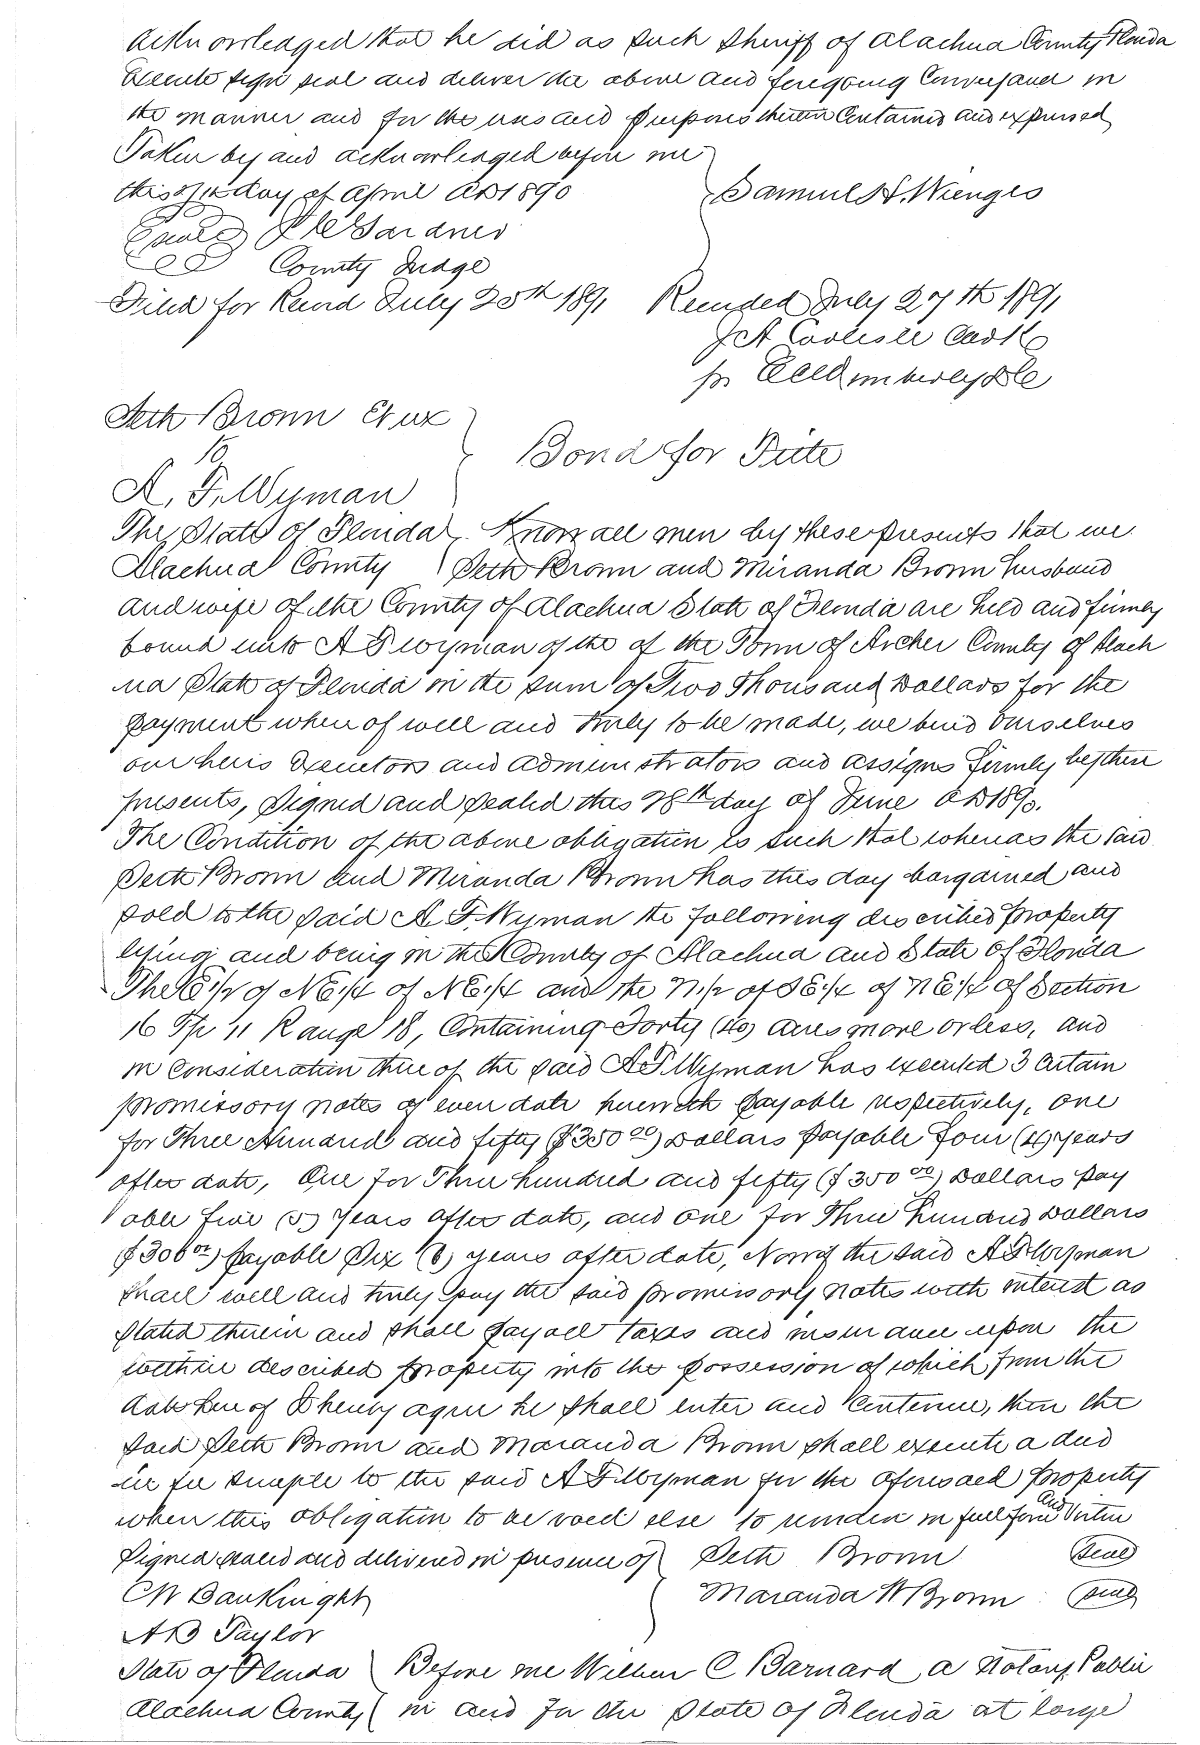 acknowledged that he did as such Sheriff of Alachua County Florida
Execute sign seal and deliver the above and foregoing Conveyance in
the manner and for the uses and purposes therein Contained and expressed
Taken by and acknowledged before me
this day of April AD 1890 Samuel H. Wienges
(seal) Gardner
County Judge
Filed for Record July 25th 1891 Recorded July 27th 1891
J A Carlisle
pr
Seth Brown Et ux
To Bond for Title
A. F. Wyman
The State of Florida Know all men by these presents that we
Alachua County Seth Brown and Miranda Brown husband
and wife of the County of Alachua State of Florida are held and firmly
bound unto A F Wyman of the of the Town of Archer County of Alach
ua State of Florida in the sum of Two Thousand Dollars for the
payment where of well and truly to be made, we bind ourselves
our heirs Executors and administrators and assigns firmly by these
presents, Signed and sealed this 28th day of June AD 1890.
The Condition of the above obligation is such that whereas the said
Seth Brown and Miranda Brown has this day bargained and
sold to the said A. F. Wyman the following described property
lying and being in the County of Alachua and State of Florida
The E 1/2 of NE 1/4 of NE 1/4 and the N 1/2 of SE 1/4 of NE 1/4 of Section
16 Tp 11 Range 18, Containing Forty (40) acres more or less, and
in consideration there of the said A F Wyman has executed 3 certain
promissory notes of even date herewith payable respectively, one
for Three Hundred and fifty ($350 00) Dollars payable four (4) years
after date, One for Three hundred and fifty ($350 00) Dollars pay
able five (5) years after date, and one for Three hundred Dollars
($300 00) payable Six (6) years after date, Now if the said A F Wyman
shall well and truly pay the said promissory notes with interest as
stated therein and shall pay all taxes and insurance upon the
within described property into the possession of which from the
date here of I hereby agree he shall enter and Continue, then the
said Seth Brown and Maranda Brown shall execute a deed
in fee simple to the said A F Wyman for the aforesaid property
when this obligation to be void else to remain in full force and Virtue
Signed sealed and delivered in presence of Seth Brown (Seal)
C W Bauknight Maranda W Brown (seal)
A B Taylor
State of Florida Before me Wilbur C Barnard a Notary Public
Alachua County in and for the State of Florida at large